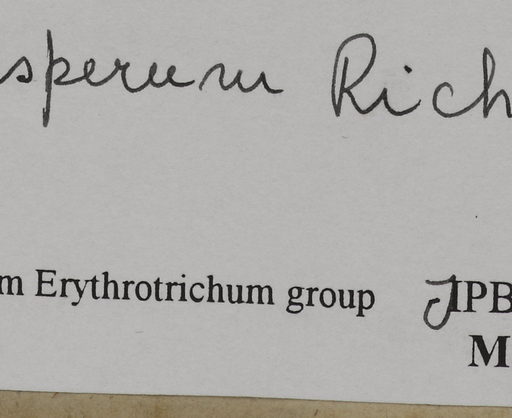 sperum Rich
m Erythrotrichum group JPB
M